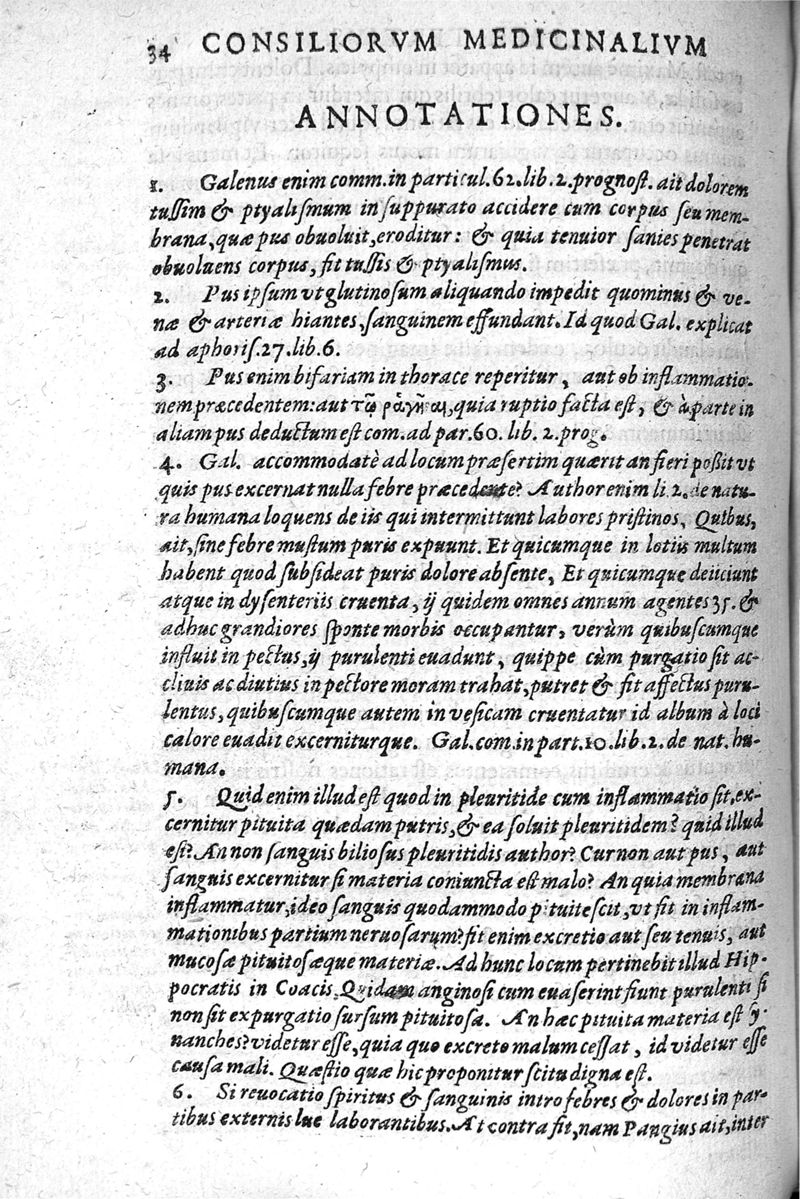 34 CONSILIORVM MEDICINALIVM
ANNOTATIONES.
1. Galenus enim comm.in particul.62.lib.2.prognost. ait dolorem
tussim & ptyalismum in suppurato accidere cum corpus seu mem-
brana, quæ pus obuoluit, eroditur: & quia tenuior sanies penetrat
obuoluens corpus, fit tussis & ptyalismus.
2. Pus ipsum vt glutinosum aliquando impedit quominus & ve-
næ & arteriæ hiantes, sanguinem effundant. Id quod Gal. explicat
ad aphoris.27.lib.6.
3. Pus enim bifariam in thorace reperitur, aut ob inflammatio-
nem præcedentem: aut τῷ ῥαγῆναι, quia ruptio facta est, & à parte in
aliam pus deductum est com. ad par.60. lib. 2.prog.
4. Gal. accommodatè ad locum præsertim quærit an fieri poßit vt
quis pus excernat nulla febre præcedente? Author enim li.2. de natu-
ra humana loquens de iis qui intermittunt labores pristinos, Quibus,
ait, sine febre mustum puris expuunt. Et quicumque in lotiis multum
habent quod subsideat puris dolore absente, Et quicumque deiiciunt
atque in dysenteriis cruenta, ij quidem omnes annum agentes 35. &
adhuc grandiores sponte morbis occupantur, verùm quibuscumque
influit in pectus, ij purulenti euadunt, quippe cùm purgatio sit ac-
cliuis ac diutius in pectore moram trahat, putret & fit affectus puru-
lentus, quibuscumque autem in vesicam cruentatur id album à loci
calore euadit excerniturque. Gal.com.in part.10.lib.2.de nat. hu-
mana.
5. Quid enim illud est quod in pleuritide cum inflammatio sit, ex-
cernitur pituita quædam putris, & ea soluit pleuritidem? quid illud
est? An non sanguis biliosus pleuritidis author? Cur non aut pus, aut
sanguis excernitur si materia coniuncta est malo? An quia membrana
inflammatur, ideo sanguis quodammodo pituitescit, vt fit in inflam-
mationibus partium neruosarum? fit enim excretio aut seu tenuis, aut
mucosæ pituitosæque materiæ. Ad hunc locum pertinebit illud Hip-
pocratis in Coacis, Quidam anginosi cum euaserint fiunt purulenti si
non sit expurgatio sursum pituitosa. An hæc pituita materia est sy-
nanches? videtur esse, quia quo excreto malum cessat, id videtur esse
causa mali. Quæstio quæ hic proponitur scitu digna est.
6. Si reuocatio spiritus & sanguinis intro febres & dolores in par-
tibus externis lue laborantibus. At contra fit, nam Paugius ait, inter